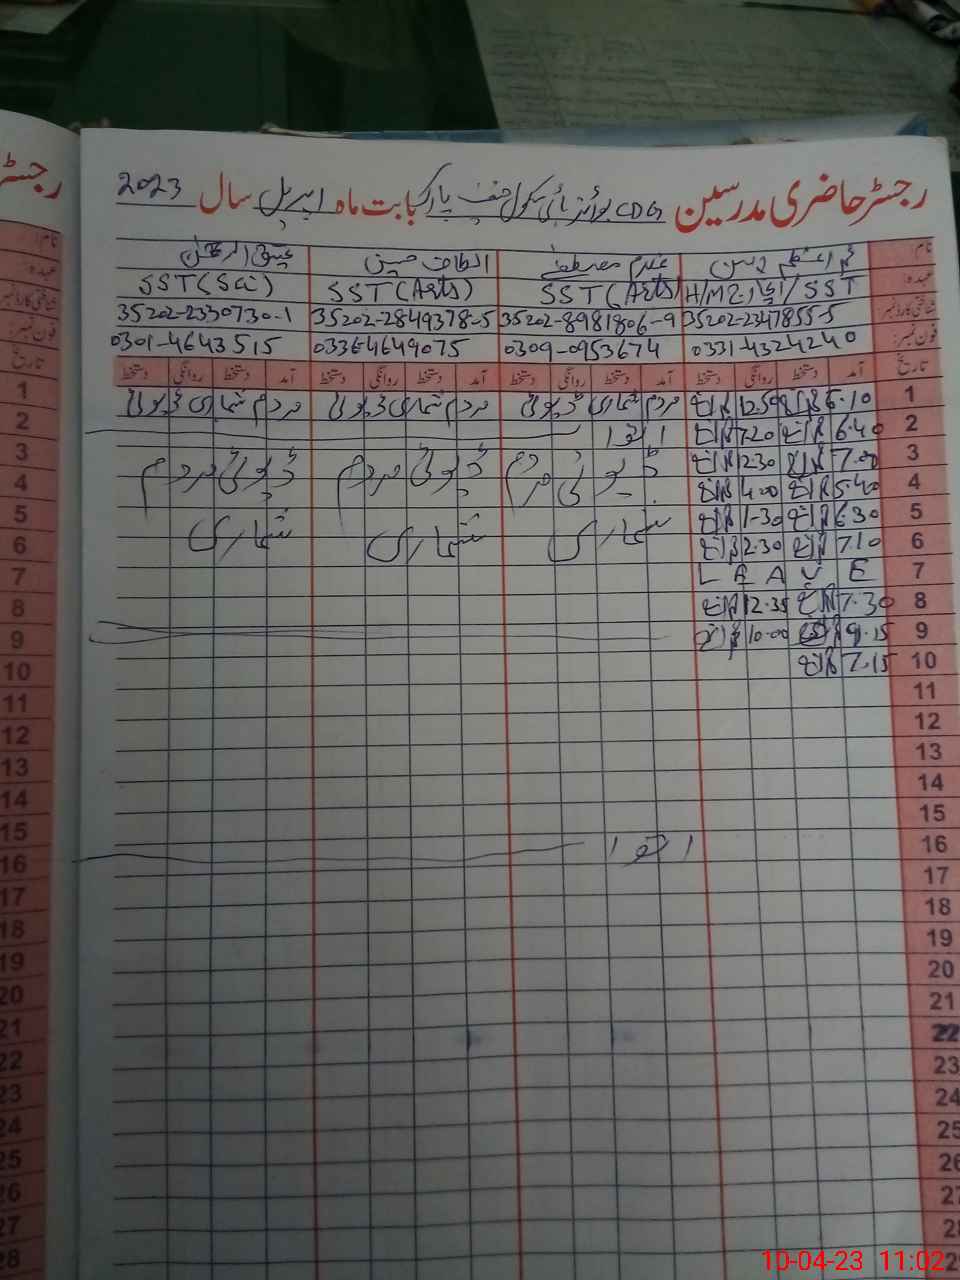 رجسٹر حاضری مدرسین CDG بوائز ہائی سکول حنیف پارک بابت ماہ اپریل سال 2023
نام محمد اعظم غلام مصطفےٰ الطاف حسین عتیق الرحمٰن
عہدہ H/M SST SST (Arts) SST (Arts) SST (Sci)
شناختی کارڈ نمبر 35202-2347855-5 35202-8981806-9 35202-2849378-5 35202-2330730-1
فون نمبر: 0331-4324240 0309-0953674 0336-4649075 0301-4643515
تاریخ آمد دستخط روانگی دستخط آمد دستخط روانگی دستخط آمد دستخط روانگی دستخط آمد دستخط روانگی دستخط
1 6.10 12.50 مردم شماری ڈیوٹی مردم شماری ڈیوٹی مردم شماری ڈیوٹی
2 6.40 7.20 اتوار
3 7.00 12.30 ڈیوٹی مردم ڈیوٹی مردم ڈیوٹی مردم
4 5.40 4.00
5 6.30 1-30 شماری شماری شماری
6 7.10 2.30
7 LEAVE
8 7.30 12.35
9 9.15 10.00
10 7.15
11
12
13
14
15
16 اتوار
17
18
19
20
21
22
23
24
25
26
27
28
29
رجسٹر
1
2
3
4
5
6
7
8
9
10
11
12
13
14
15
16
17
18
19
20
21
22
23
24
25
26
27
28
10-04-23 11:02